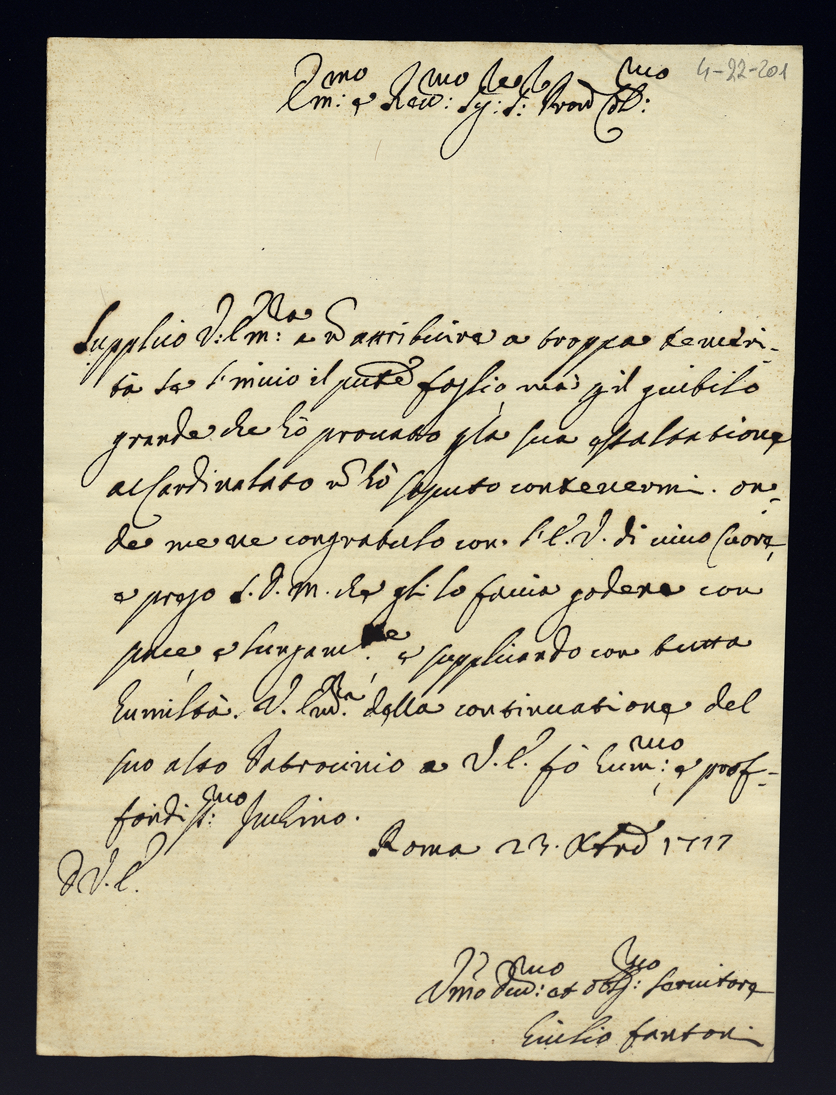 4-22-201
Em:mo e Reu:mo Sig:re S:r Pron Col:mo
Supplico V: Em:za a n attribuire a troppa temeri-
tà se l'inuio il pnte foglio, mà p il giubilo
grande che hò prouato p la sua esaltatione
al Cardinalato n hò saputo contenermi. on-
de me ne congratulo con l'E. V. di uiuo Cuore,
e prego S. D. M. che gli lo faccia godere con
pace, e lungam:te e supplicando con tutta
humiltà. V. Em:za della continuatione del
suo alto Patrocinio a V. E. fò hum:mo, e proff-
fondis:mo Inchino.
Roma 23. Xbre 1777
D V. E.
Vmo Diu:mo et obbg:mo Seruitore
Giulio Fantoni